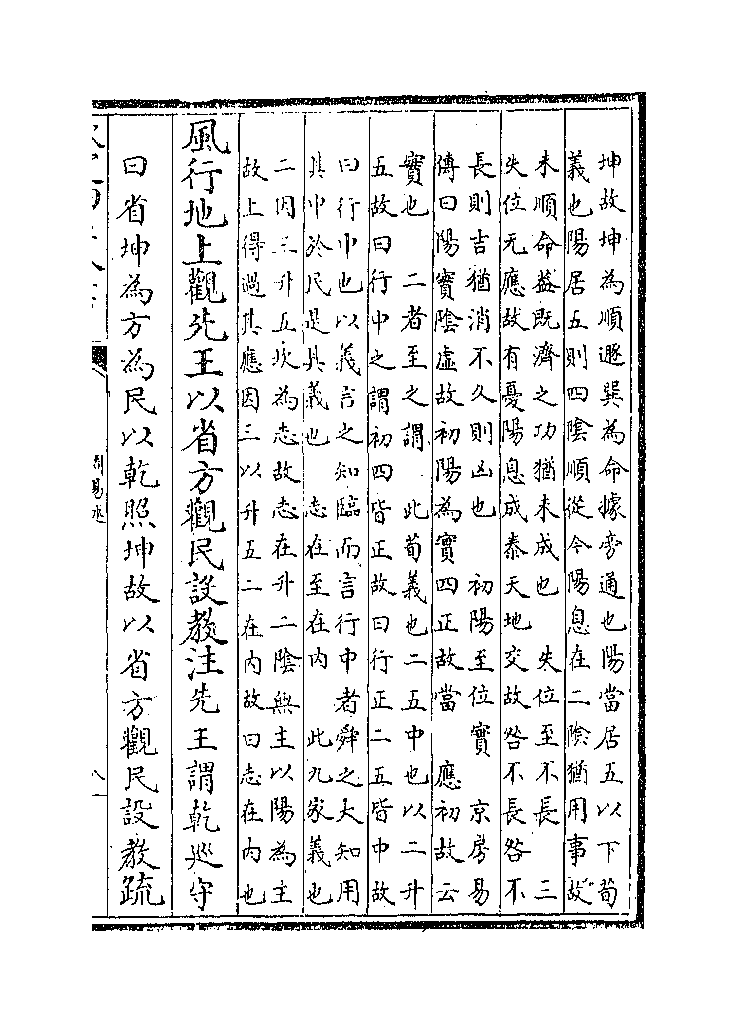 坤故坤為順遯巽為命據旁通也陽當居五以下荀
義也陽居五則四陰順從今陽息在二陰猶用事故
未順命益既濟之功猶未成也　失位至不長　三
失位无應故有憂陽息成泰天地交故咎不長咎不
長則吉猶消不久則凶也　初陽至位實　京房易
傳曰陽實陰虛故初陽為實四正故當　應初故云
實也　二者至之謂　此荀義也二五中也以二升
五故曰行中之謂初四皆正故曰行正二五皆中故
曰行中也以義言之知臨而言行中者舜之大知用
其中於民是其義也　志在至在内　此九家義也
二因三升五坎為志故志在升二陰無主以陽為主
故上得過其應因三以升五二在内故曰志在内也
風行地上觀先王以省方觀民設教注先王謂乾巡守
曰省坤為方為民以乾照坤故以省方觀民設教疏
周易述